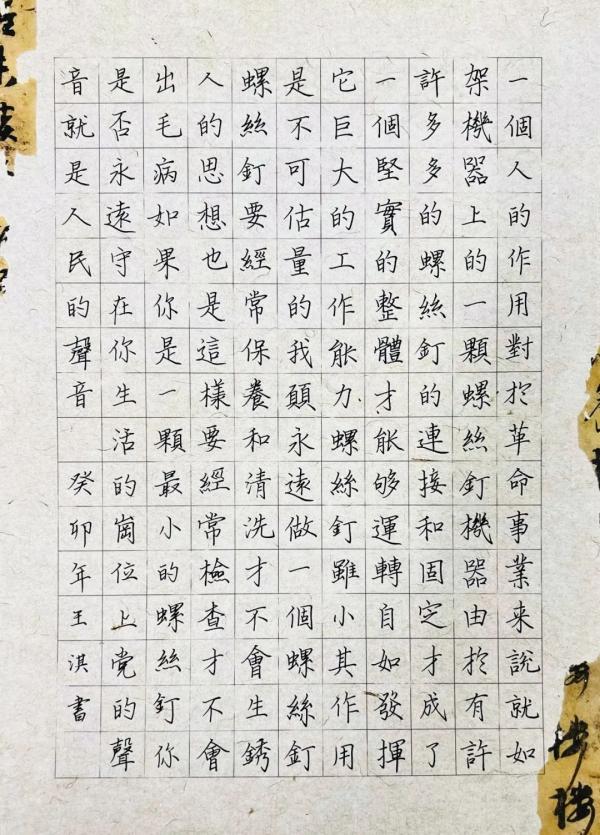 一個人的作用對於革命事業来說就如
架機器上的一顆螺絲釘機器由於有許
許多多的螺絲釘的連接和固定才成了
一個堅實的整體才能够運轉自如發揮
它巨大的工作能力螺絲釘雖小其作用
是不可估量的我願永遠做一個螺絲釘
螺絲釘要經常保養和清洗才不會生銹
人的思想也是這樣要經常檢查才不會
出毛病如果你是一顆最小的螺絲釘你
是否永遠守在你生活的崗位上党的聲
音就是人民的聲音 癸卯年王淇書